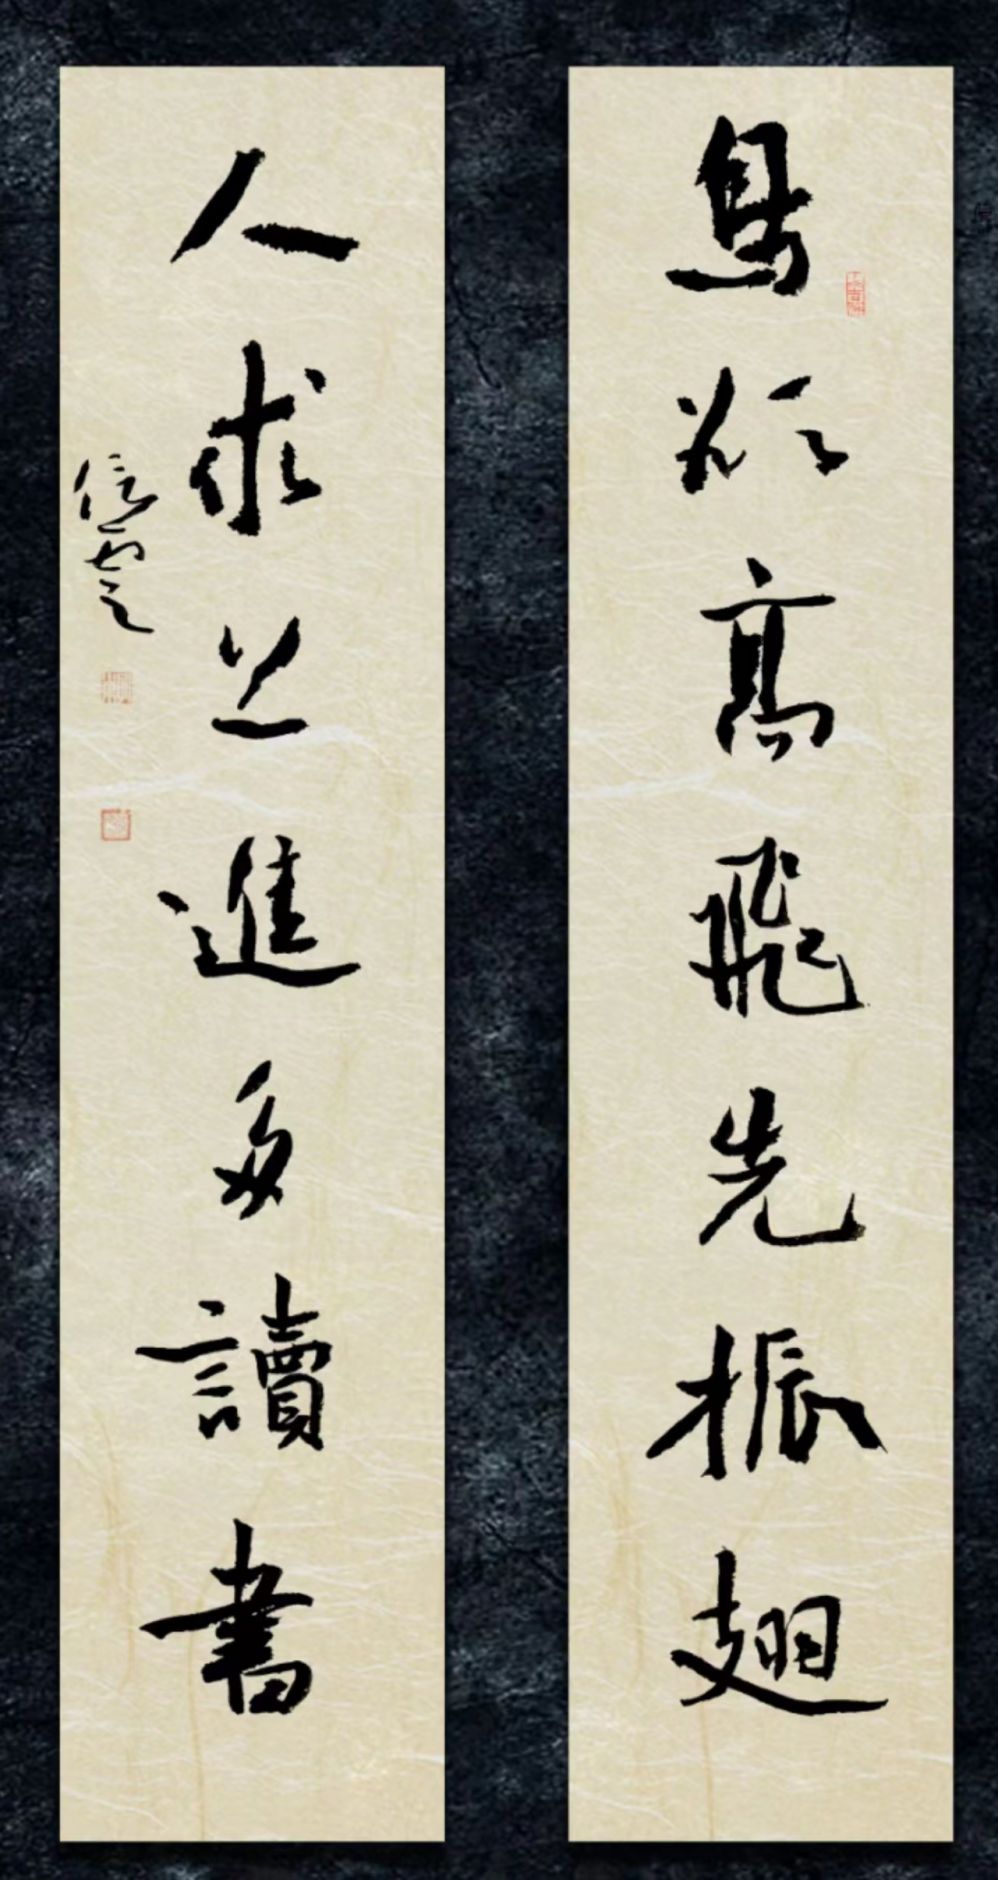 鳥欲高飛先振翅
人求上進多讀書